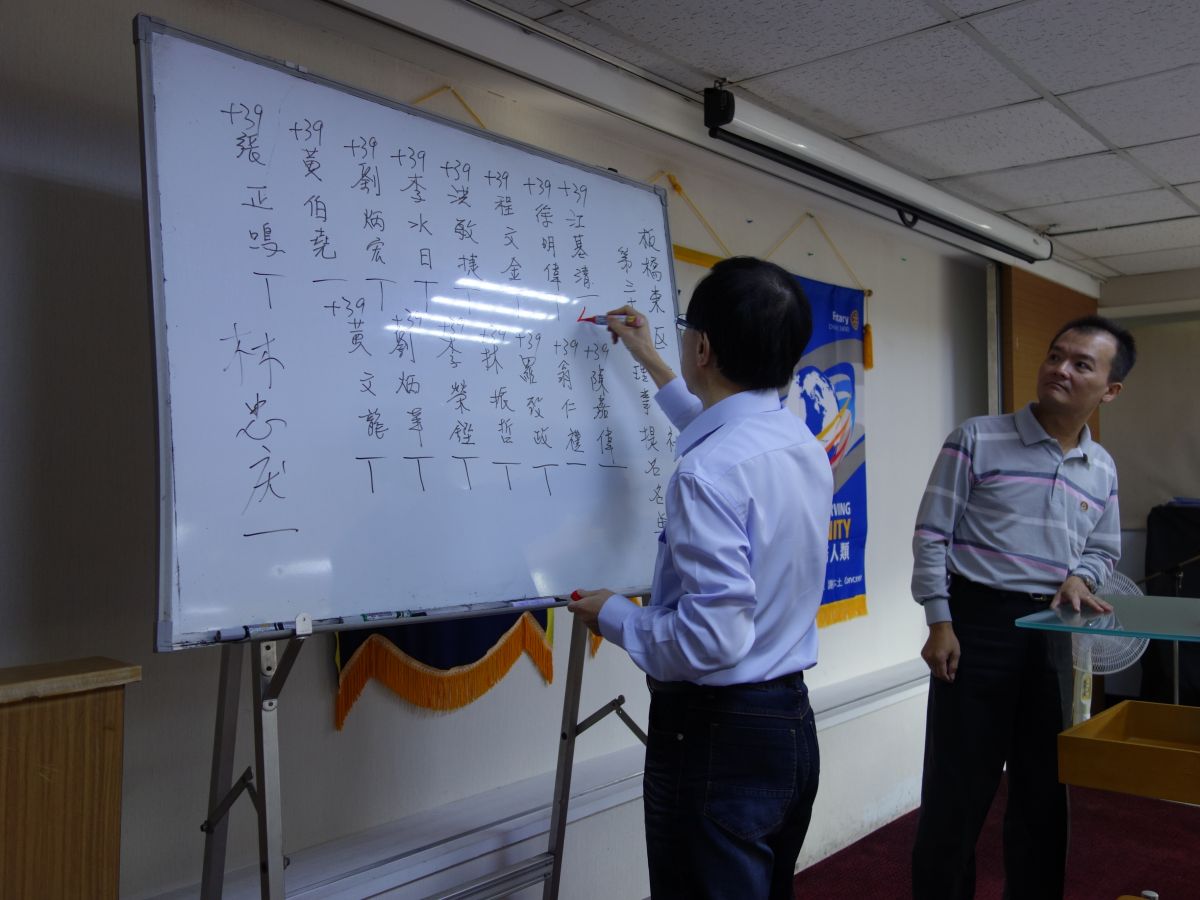 板橋東区
社
第二
理事提名名單
+39 江基清 一
+39 徐明偉 丅
+39 程文金 丅
+39 洪敏捷 丅
+39 李水日 丅
+39 劉炳宏 丅
+39 黃伯堯 一
+39 張正鳴 丅
+39 陳嘉偉 一
+39 翁仁禮 一
+39 羅致政 丅
+39 林振哲 丅
+39 李榮鏗 丅
+39 劉炳 丅
+39 黃文龍 丅
林忠庆 一
Rotary
RVING
NITY
人類